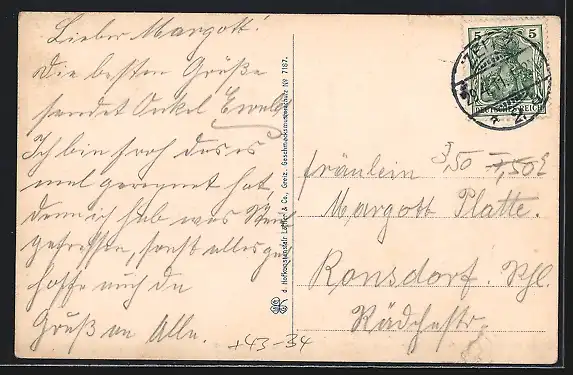 Lieber Margott!
Die besten Grüße
sendet Onkel Ewald
Ich bin froh das es
mal geregnet hat,
denn ich hab was Staub
gefressen, sonst alles gut
hoffe auch du
Gruß an Alle.
+43-34
d. Hofkunstanstalt Löffler & Co., Greiz. Geschmacksmusterschutz No 7187.
5 5
DEUTSCHES REICH
3,50 7,50
Fräulein
Margott Platte.
Ronsdorf. Rhl.